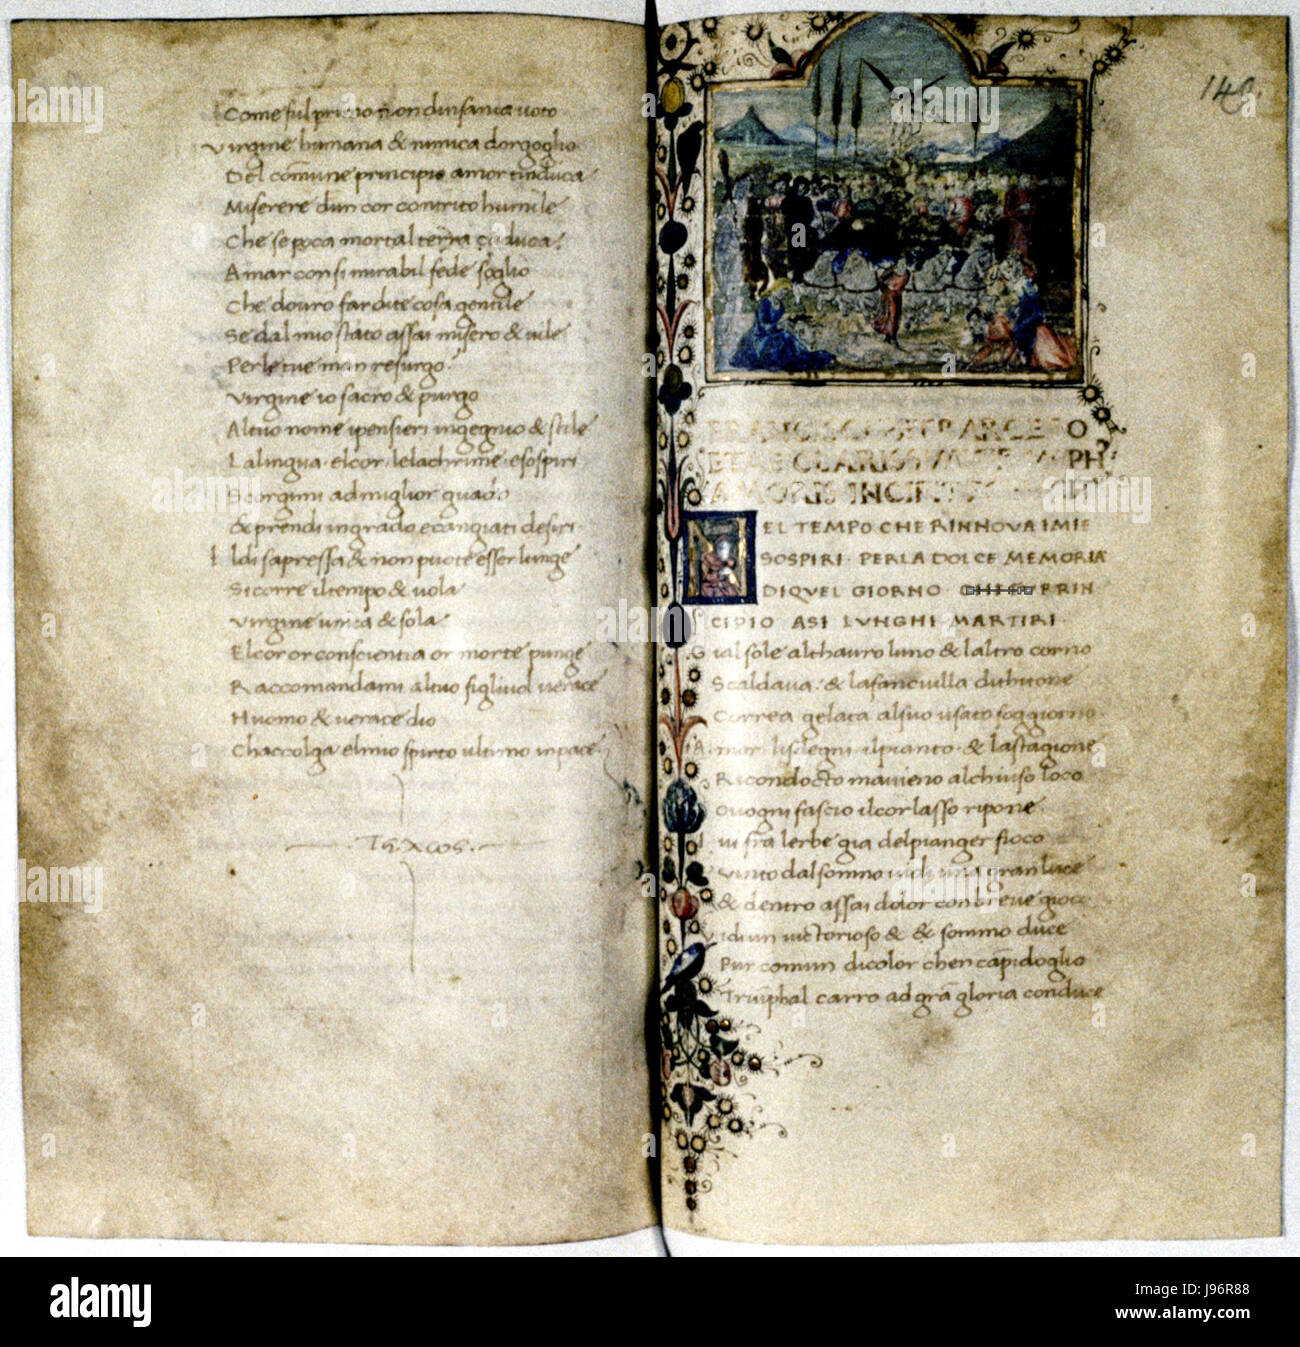 Come ful primo non dinsania voto
Virgine humana & nimica dorgoglio
Del comune principio amor tinduca
Miserere dun cor contrito humile
Che se poca mortal terra caduca
Amar con si mirabil fede soglio
Che douro far di te cosa gentile
Se dal mio stato assai misero & uile
Per le tue man resurgo
Virgine io sacro & purgo
Al tuo nome ipensieri ingegnio & stile
La lingua elcor le lachrime esospiri
Scorgimi ad miglior guado
& prendi in grado ecangiati desiri
I ldi sapressa & non puote esser lunge
Si corre il tempo & uola
Virgine unica & sola
El cor or conscientia or morte punge
Raccomandami al tuo figliuol uerace
Huomo & uerace dio
Chaccolga elmio spirto ultimo in pace
140.
FRANCISCI PETRARCE PO
ETAE CLARISSIMI TRIVMPH
AMORIS INCIPIT
N EL TEMPO CHE RINNOVA I MIE
SOSPIRI PER LA DOLCE MEMORIA
DI QVEL GIORNO PRIN
CIPIO A SI LVNGHI MARTIRI
Gia il sole al thauro luno & laltro corno
Scaldaua & la fanciulla di thitone
Correa gelata al suo usato soggiorno
Amor li sdegni il pianto & la stagione
Ricondocto mauieno al chiuso loco
Ouogni fascio il cor lasso ripone
I ui fra lerbe gia del pianger fioco
Vinto dal somno uidi una gran luce
& dentro assai dolor con breue gioco
Vidi un uictorioso & & sommo duce
Pur comun di color chen capidoglio
Triumphal carro ad gran gloria conduce
alamy
Image ID: J96R88
www.alamy.com